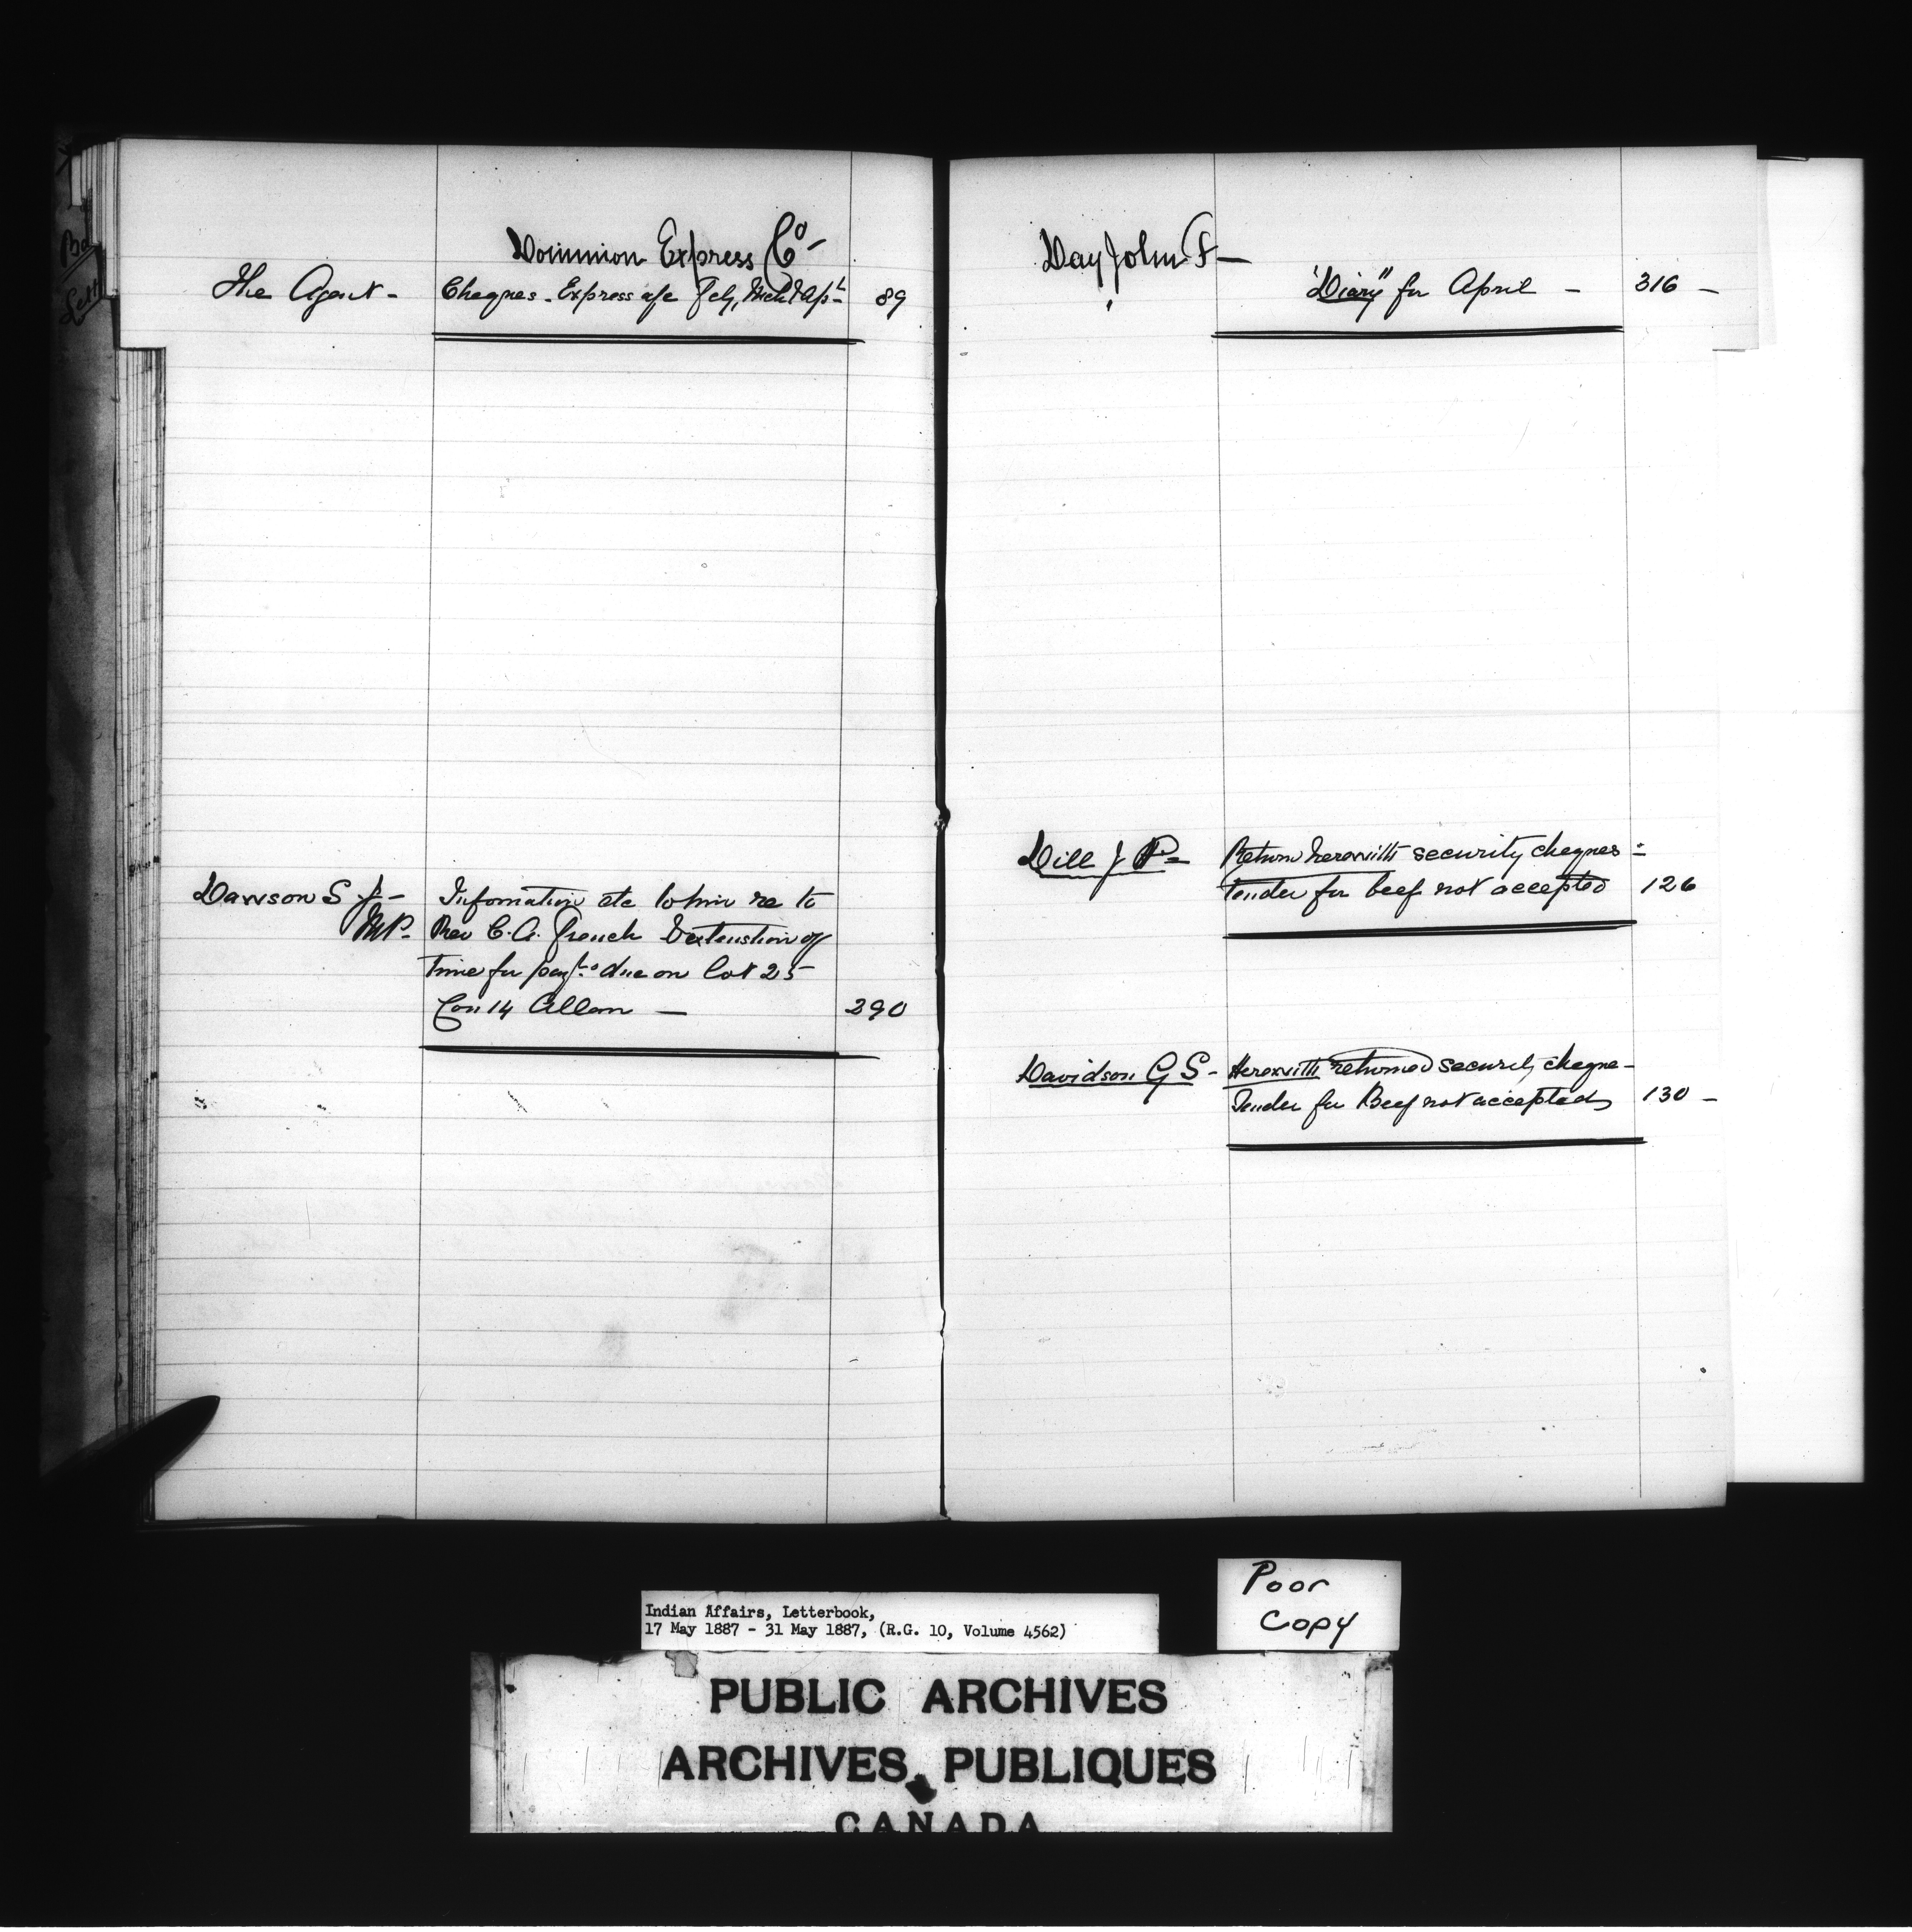 Dominion Express Co -
The Agent - Cheques - Express a/c Feb, Mch & Apl - 89
Dawson S J - Information etc to him re to
MP - Rev C. A. French & extenstion of
time for payts due on lot 25
Con 14 Allan - 290
Day John F -
"Diary" for April - 316 -
Dill J P - Return herewith security cheques -
Tender for beef not accepted 126
Davidson G S - Herewith returned security cheque -
Tender for Beef not accepted 130 -
Indian Affairs, Letterbook,
17 May 1887 - 31 May 1887, (R.G. 10, Volume 4562)
Poor
Copy
PUBLIC ARCHIVES
ARCHIVES PUBLIQUES
CANADA